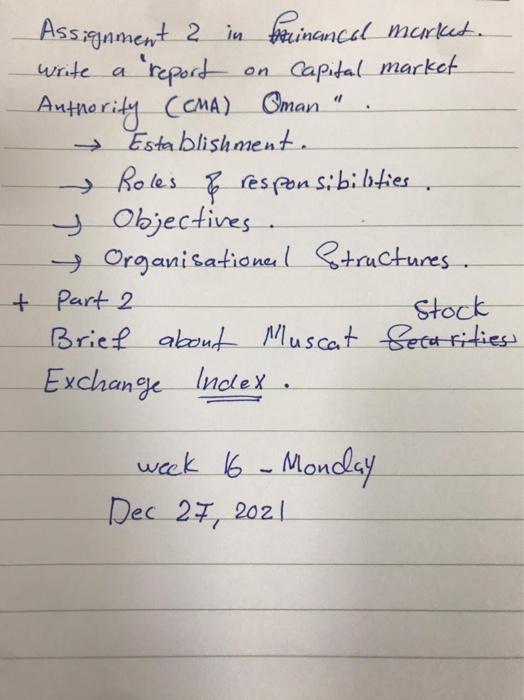 Assignment 2 in financal market.
write a "report on Capital market
Authority (CMA) Oman ".
→ Establishment.
→ Roles & responsibilities.
→ Objectives.
→ Organisational Structures.
+ Part 2
Stock
Brief about Muscat Securities
Exchange Index.
week 16 - Monday
Dec 27, 2021